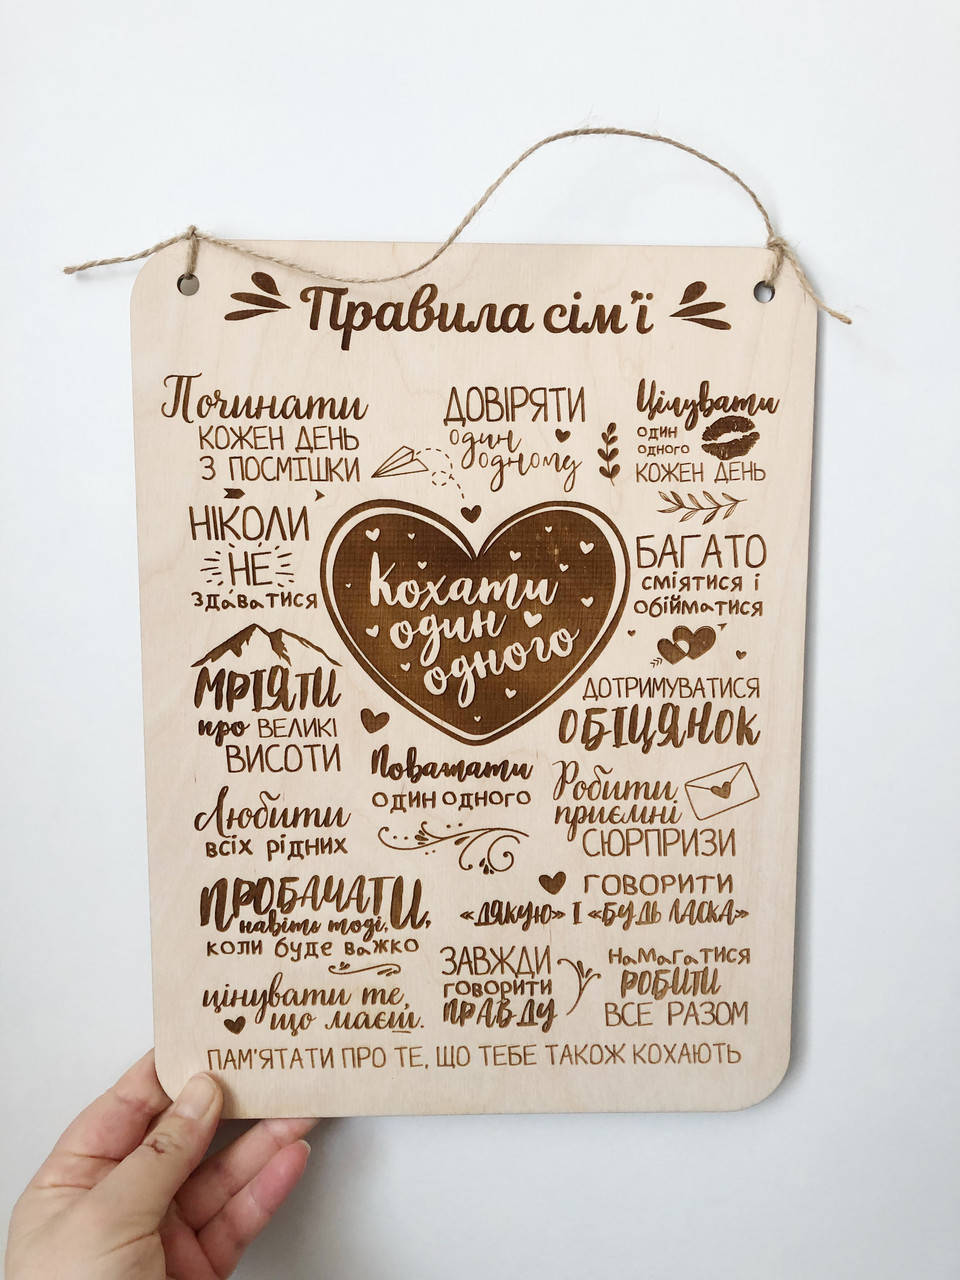 Правила сім'ї
Починати
КОЖЕН ДЕНЬ
З ПОСМІШКИ
ДОВІРЯТИ
один
одному
Цілувати
один
одного
КОЖЕН ДЕНЬ
НІКОЛИ
НЕ
здаватися
Кохати
один
одного
БАГАТО
сміятися і
обійматися
МРІЯТИ
про ВЕЛИКІ
ВИСОТИ
ДОТРИМУВАТИСЯ
ОБІЦЯНОК
Поважати
один одного
Любити
всіх рідних
Робити
приємні
СЮРПРИЗИ
ПРОБАЧАТИ,
навіть тоді,
коли буде важко
ГОВОРИТИ
«ДЯКУЮ» І «БУДЬ ЛАСКА»
цінувати те,
що маєш.
ЗАВЖДИ
говорити
ПРАВДУ
намагатися
РОБИТИ
ВСЕ РАЗОМ
ПАМ'ЯТАТИ ПРО ТЕ, ЩО ТЕБЕ ТАКОЖ КОХАЮТЬ